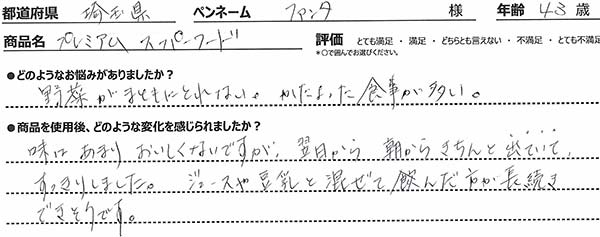 都道府県 埼玉県 ペンネーム ファンタ 様 年齢 43 歳
商品名 プレミアム スーパーフード 評価 とても満足 ・ 満足 ・ どちらとも言えない ・ 不満足 ・ とても不満足
*○で囲んでお選びください。
●どのようなお悩みがありましたか？
野菜がまともにとれない。かたよった食事が多い。
●商品を使用後、どのような変化を感じられましたか？
味はあまりおいしくないですが、翌日から朝からきちんと出ていて、
すっきりしました。ジュースや豆乳と混ぜて飲んだ方が長続き
できそうです。